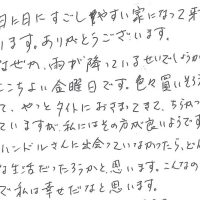 日に日にすごし やすい 家になって来
います。ありがとうございます。
なぜか、雨が降っているせいでしょうか
ここちよい 金曜日です。色々買いそろ
て、やっと タイトに おさまってきて、ちらか
ていますが、私にはその方が良いようです
ハンドルさんに出会っていなかったら、どん
な生活だったろうかと、思います。こんなの
で私は幸せだなと思います。